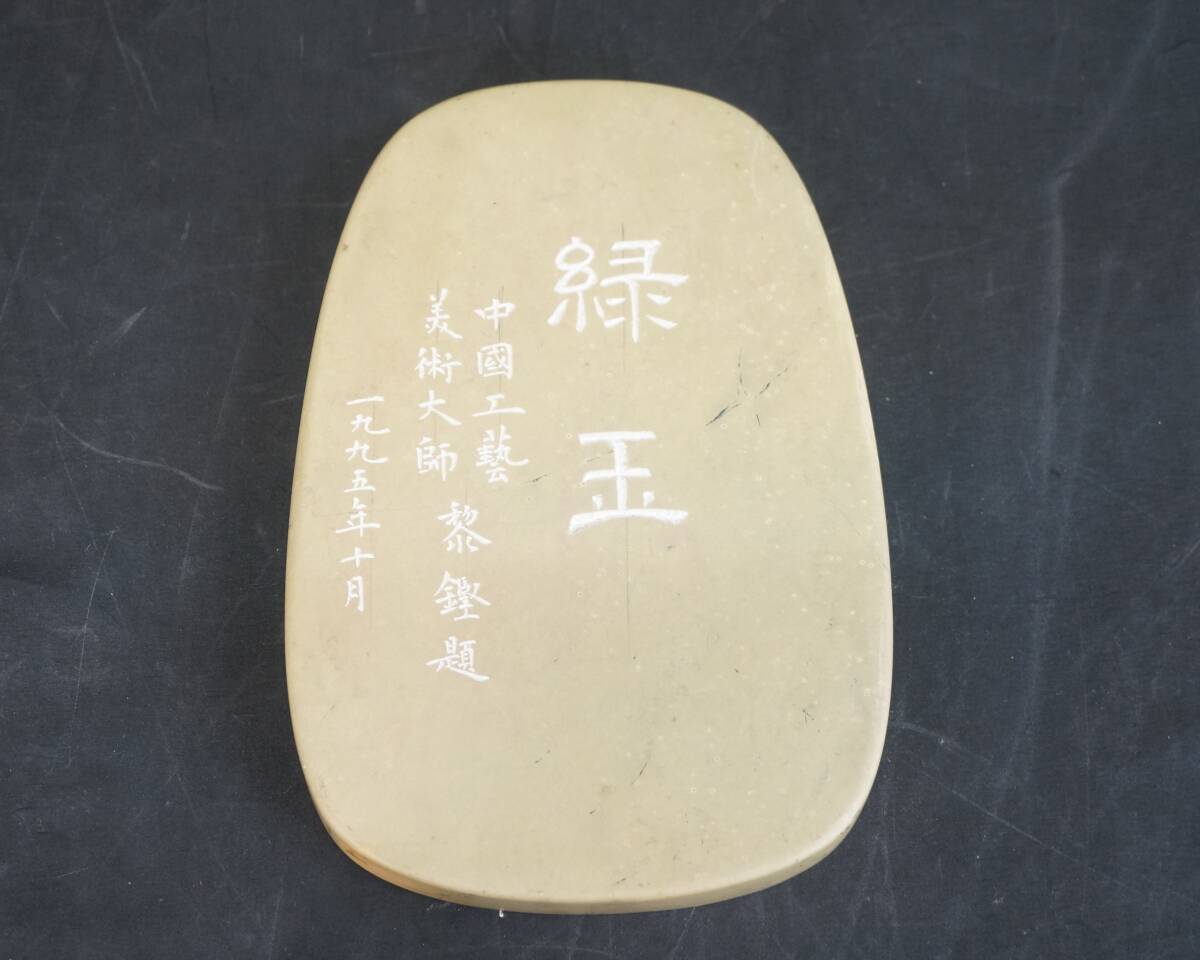 緑玉
中國工藝
美術大師
黎鏗題
一九九五年十月